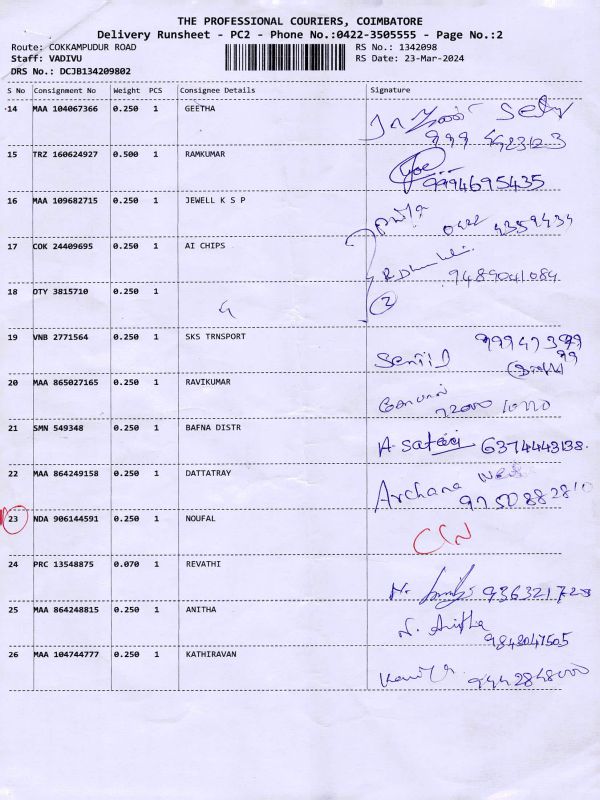 THE PROFESSIONAL COURIERS, COIMBATORE
Delivery Runsheet - PC2 - Phone No.:0422-3505555 - Page No.:2
Route: COKKAMPUDUR ROAD RS No.: 1342098
Staff: VADIVU RS Date: 23-Mar-2024
DRS No.: DCJB134209802
S No Consignment No Weight PCS Consignee Details Signature
14 MAA 104067366 0.250 1 GEETHA
999 5923123
15 TRZ 160624927 0.500 1 RAMKUMAR
9994695435
16 MAA 109682715 0.250 1 JEWELL K S P
0422 4359434
17 COK 24409695 0.250 1 AI CHIPS
9489041084
18 OTY 3815710 0.250 1
2
19 VNB 2771564 0.250 1 SKS TRNSPORT
99947399
99
20 MAA 865027165 0.250 1 RAVIKUMAR
72000 10770
21 SMN 549348 0.250 1 BAFNA DISTR
A. 6374443138.
22 MAA 864249158 0.250 1 DATTATRAY
Archana 9750882810
23 NDA 906144591 0.250 1 NOUFAL
24 PRC 13548875 0.070 1 REVATHI
N. 936321728
25 MAA 864248815 0.250 1 ANITHA
N. Anitha
9842047505
26 MAA 104744777 0.250 1 KATHIRAVAN
9442848000